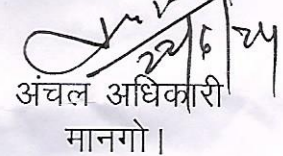 22/6/24
अंचल अधिकारी
मानगो।